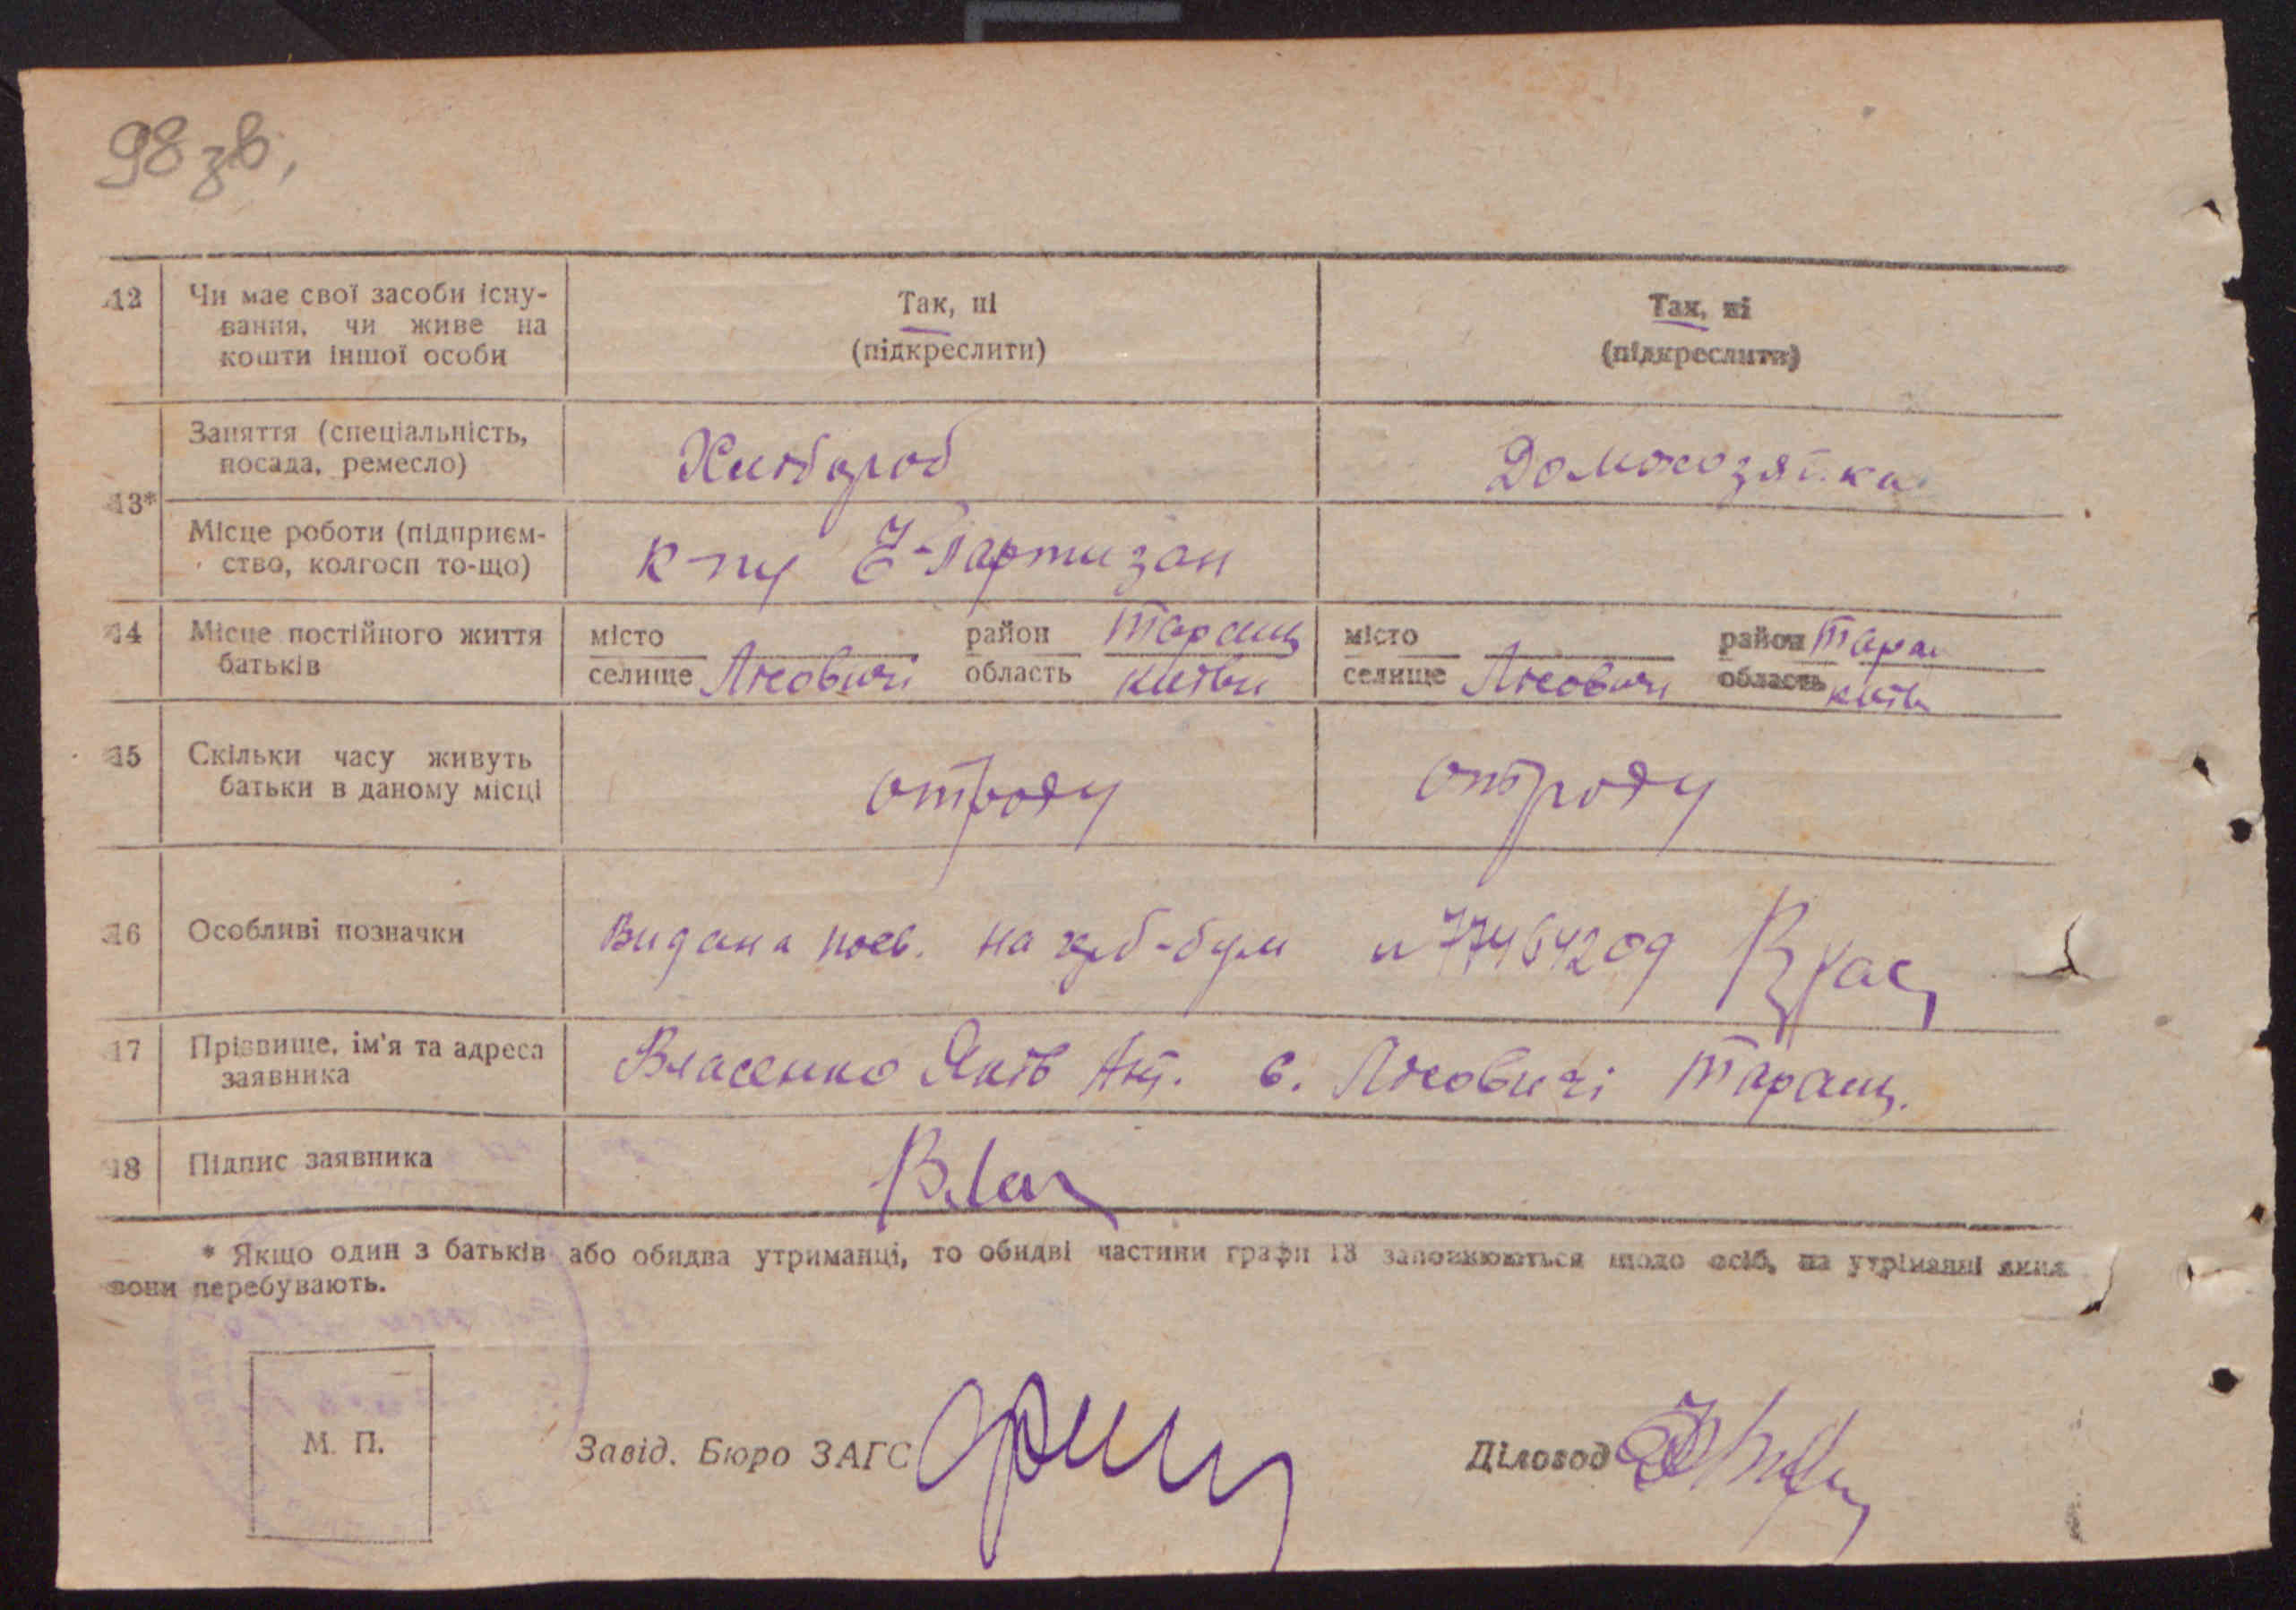 98 зв.
12 Чи має свої засоби існу-
вання, чи живе на
кошти іншої особи
Так, ні
(підкреслити)
Так, ні
(підкреслити)
13*
Заняття (спеціальність,
посада, ремесло)
Хлібороб
Домохозяйка
Місце роботи (підприєм-
ство, колгосп то-що)
к-пу Ч-Партизан
14 Місце постійного життя
батьків
місто
селище Лісовичі
район Таращ
область Київськ
місто
селище Лісовичі
район Таращ
область Київ
15 Скільки часу живуть
батьки в даному місці
отроду
отроду
16 Особливі позначки
Видана посв.
17 Прізвище, ім'я та адреса
заявника
Власенко Яків с. Лісовичі Таращ.
18 Підпис заявника
Влас
* Якщо один з батьків або обидва утриманці, то обидві частини графи 13 заповнюються щодо осіб, на утріманні яких
вони перебувають.
М. П.
Завід. Бюро ЗАГС
Діловод